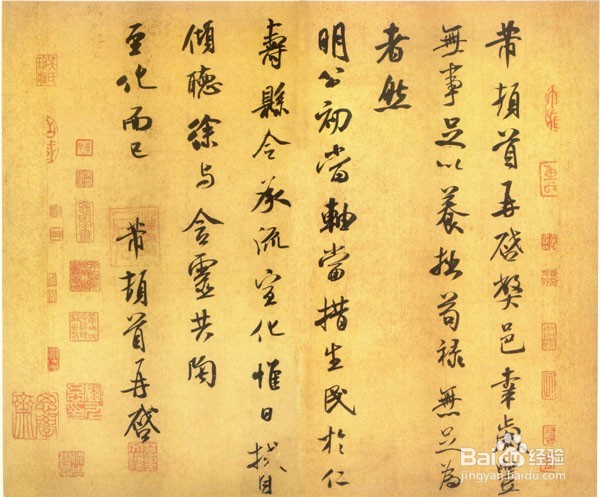 芾頓首再啓獘邑幸歲豊
無事足以養拙苟禄無足為
者然
明公初當軸當措生民於仁
壽縣令承流宣化惟日拭目
傾聽徐与含靈共陶
至化而已 芾頓首再啓
Baidu 经验
jingyan.baidu.com